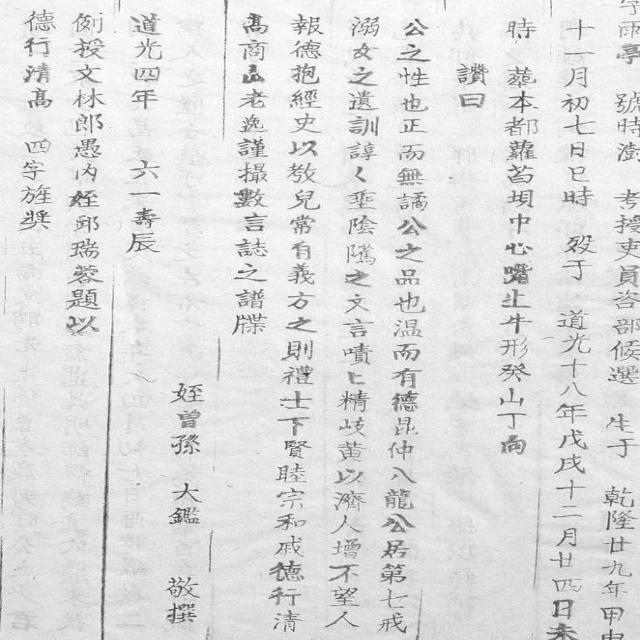 雨亭 號時澍 考授吏員咨部候選 生于 乾隆廿九年甲申
十一月初七日巳時 歿于 道光十八年戊戌十二月廿四日未
時 塟本都蘿苫垻中心嘴上牛形癸山丁向
讚曰
公之性也正而無譎公之品也温而有德昆仲八龍公居第七戒
溺女之遺訓諄〻垂陰隲之文言嘖〻精岐黄以濟人壇不望人
報德抱經史以敎兒常有義方之則禮士下賢睦宗和戚德行清
高商山老逸謹撮數言誌之譜牒
姪曽孫 大鑑 敬撰
道光四年 六一壽辰
例授文林郎愚内姪邱瑞蓉題以
德行清高 四字旌奨